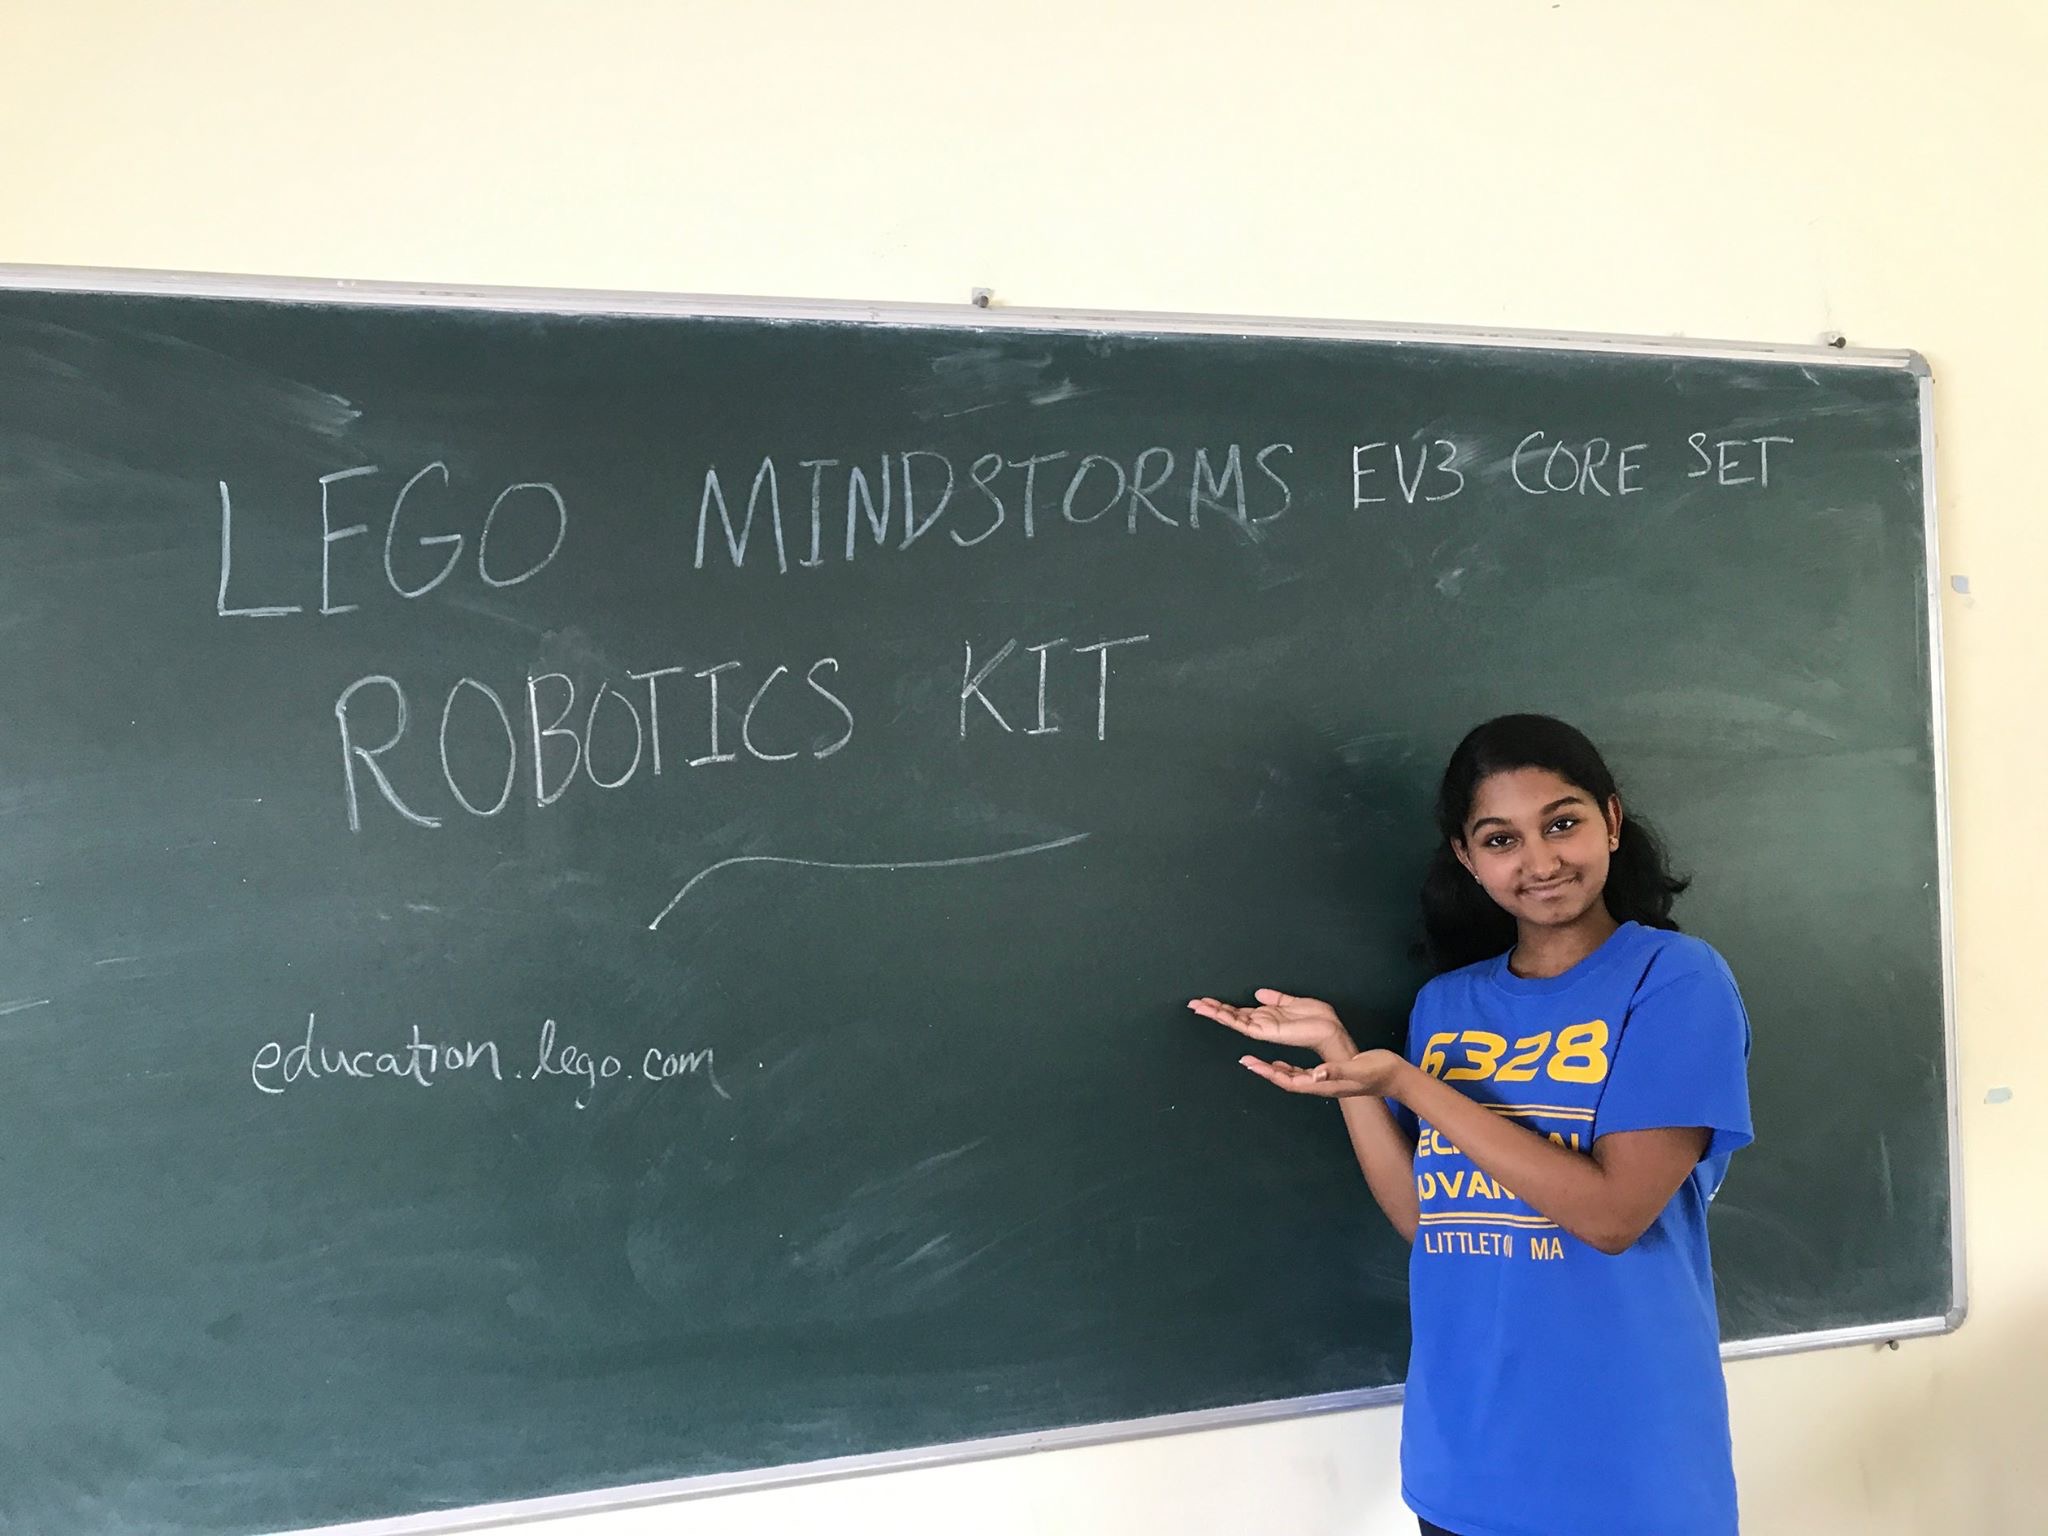 LEGO MINDSTORMS EV3 CORE SET
ROBOTICS KIT
education.lego.com
6328
LITTLETON MA